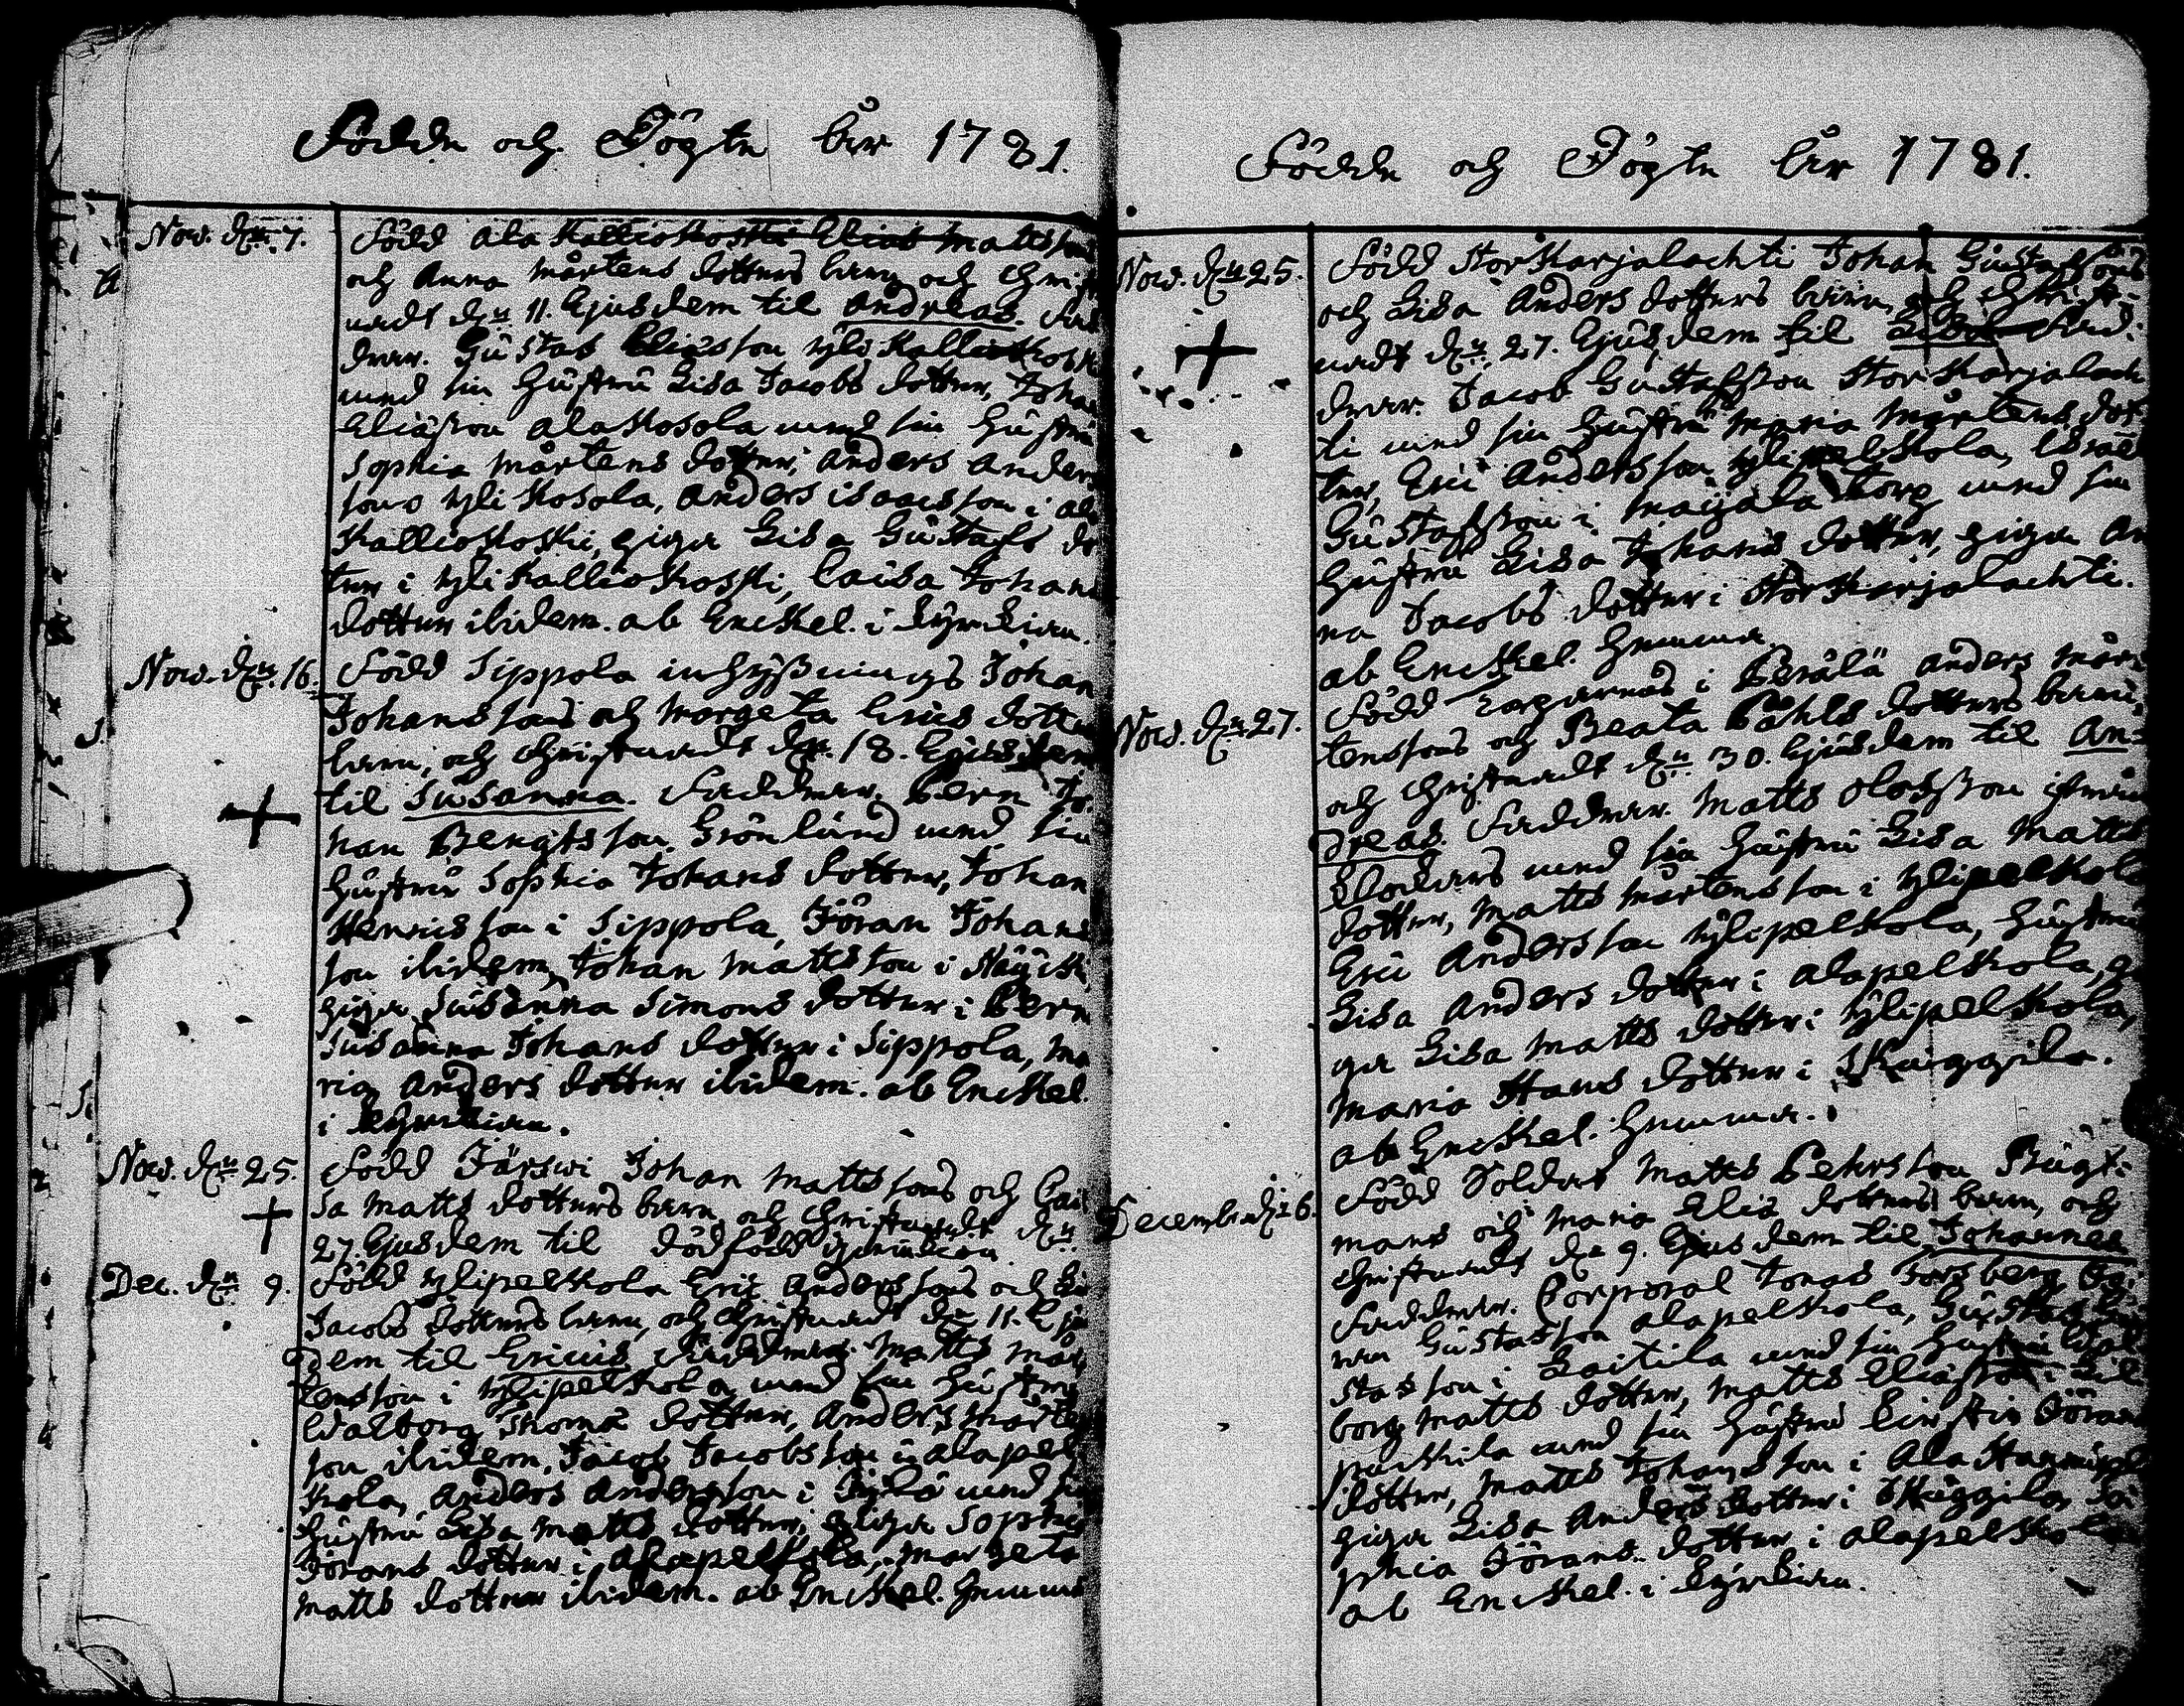 Födde och Dögte åhr 1781.
Nov. d. 7.
Född Ala Kallioskoski Elias Matts son
och Anna Mårtens dotters barn, och Christ
nadt d. 11. Ejusdem til Andreas. Fad
drar. Gustav Eliasson yli Kalliokosk
med sin hustru Lisa Jacobs dotter, Johan
Eliasson Alakosola med sin hustru
Sophia Mårtens dotter, Anders Anders
sons yli Kosola, Anders Isaacsson i ala
Kallioskoski, piga Lisa Gustafs do
ter i yli Kallioskoski, Caisa Johans
dotter ibidem. ab Enckel. i kyrckian.
Nov. d. 16.
Född Sippola inhyssnings Johan
Johanssons och Margeta Erics dotters
barn, och Christnadt d. 18. Ejusdem
til Susanna. Faddrar. Pern Jo-
han Bengtsson Grönlund med sin
hustru Sophia Johans dotter, Johan
Henricsson i Sippola, Jöran Johans
son ibidem, Johan Mattsson i
piga Susanna Simons dotter i Pern
Susanna Johans dotter i Sippola, Ma
ria Anders dotter ibidem. ab Enckel.
i kyrckian.
Nov. d. 25.
Född Järswi Johan Mattssons och Cai
sa Matts dotters barn, och Christnadt d.
27. Ejusdem til dödfödt
Dec. d. 9.
Född ylipelkola Eric Anderssons och Li
Jacobs dotters barn, och Christnadt d. 11. Ejus
dem til Ericus. Faddrar. Matts Mår
tensson i ylipelkola med sin hustru
Walborg Thomæ dotter, Anders Mårtens
son ibidem, Jacob Jacobsson i alapel
kola, Anders Andersson i med si
hustru Lisa Matts dotter, piga Sophia
Jörans dotter i alapelkola, Margeta
Matts dotter ibidem. ab Enckel. hemma
Födde och Dögte åhr 1781.
Nov. d. 25.
Född Storkarjalachti Johan Gustafssons
och Lisa Anders dotters barn, och Christ-
nadt d. 27. Ejusdem til Fad-
drar. Jacob Gustafsson Storkarjalach
ti med sin hustru Maria Mårtens dot
ter, Eric Andersson ylipelkola, Israel
Gustafsson i torp med sin
hustru Lisa Johans dotter, piga An
na Jacobs dotter i Storkarjalachti.
ab Enckel. hemma
Nov. d. 27.
Född Torparens i Perälä Anders Mår-
tenssons och Beata Påhls dotters barn,
och Christnadt d. 30. Ejusdem til An-
dreas. Faddrar. Matts Olofsson
med sin hustru Lisa Matts
dotter, Matts Mårtensson i ylipelkola
Eric Andersson ylipelkola, hustru
Lisa Anders dotter i alapelkola, pi
ga Lisa Matts dotter i ylipelkola,
Maria Hans dotter i Skuggila.
ab Enckel. hemma.
Decemb. d. 6.
Född Soldat Matts Pehrsson Bügt-
mans och Maria Elis dotters barn, och
Christnadt d. 9. Ejusdem til Johannes
Faddrar. Corporal Jonas Forsberg, Jö-
ran Gustafsson alapelkola, Gustaf Gu
stafsson i Laitila med sin hustru Wal
borg Matts dotter, Matts Eliasson i Lil
paskila med sin hustru Kirstin Jörans
dotter, Matts Johansson i Ala
piga Lisa Anders dotter i Skuggila, So
phia Jörans dotter i alapelkola
ab Enckel. i kyrckian.